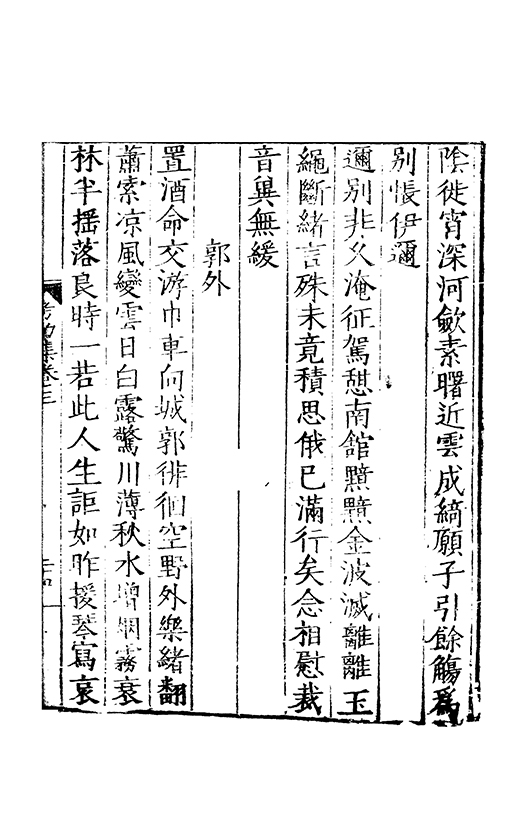 陰徙宵深河歛素曙近雲成縞願子引餘觴爲
别悵伊邇
邇别非乆淹征駕憇南館黯黯金波滅離離玉
繩斷緒言殊未竟積思俄已滿行矣念相慰裁
音㒷無緩
郭外
置酒命交游巾車向城郭徘徊空野外樂緒翻
蕭索凉風變雲日白露驚川薄秋水增烟霧衰
林半揺落良時一若此人生詎如昨援琴寫哀
考功集卷三